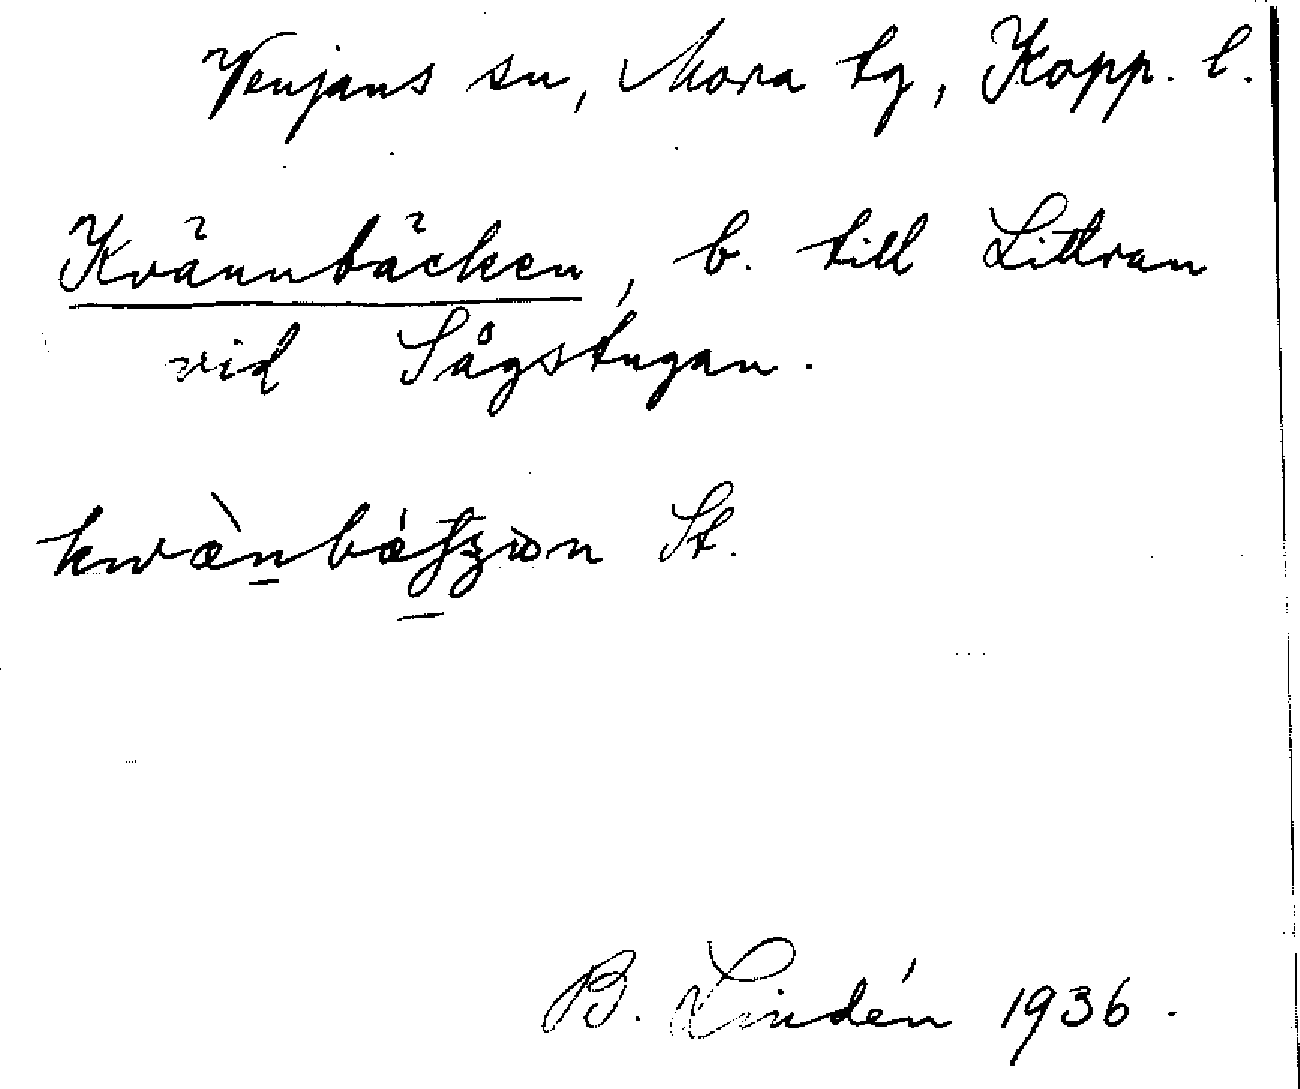 Venjans sn, Mora tg, Kopp. l.
Kvännbäcken, b. till Littran
vid Sågstugan.
St.
B. Lindén 1936.